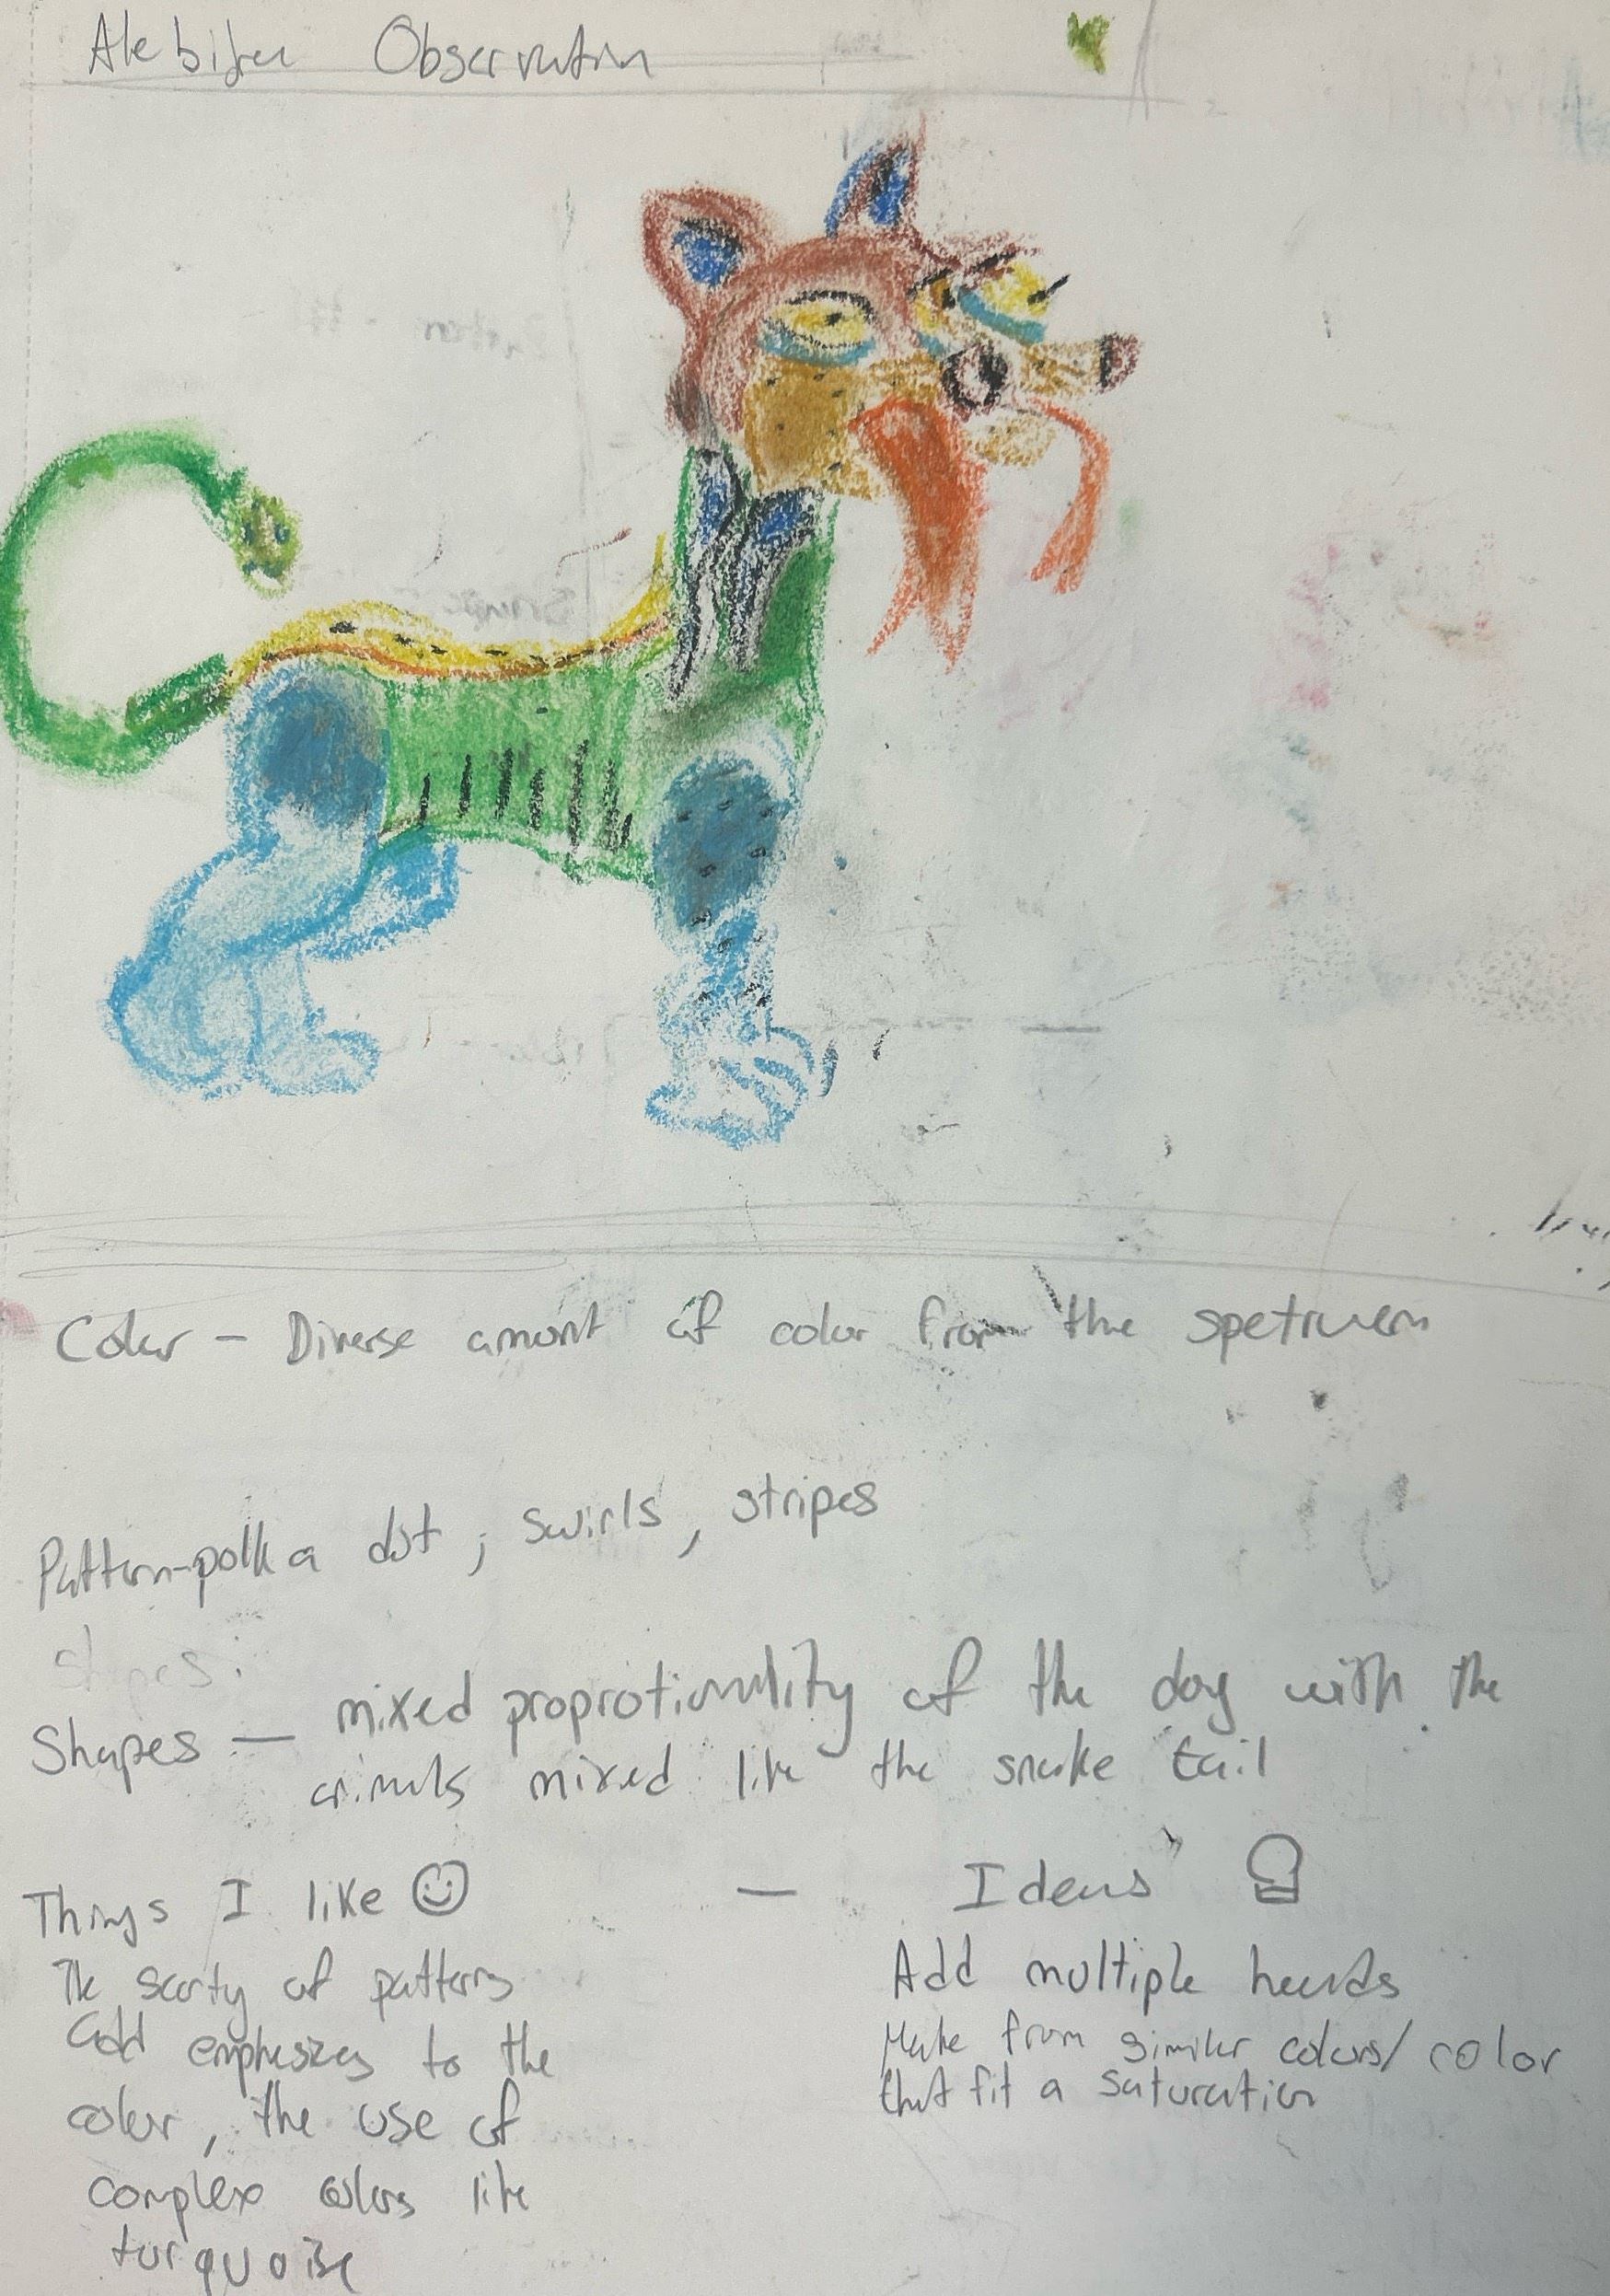 Alebijen Observation
Color - Diverse amont of color from the spetruem
Pattern-polka dot, swirls, stripes
Shapes:
Shapes — mixed proprotionality of the dog with the
animals mixed like the snake tail
Things I like — Ideas
The of patterns
add emphesizes to the
color, the use of
complex colors like
turquoise
Add multiple heads
Make from similer colors/color
that fit a saturation